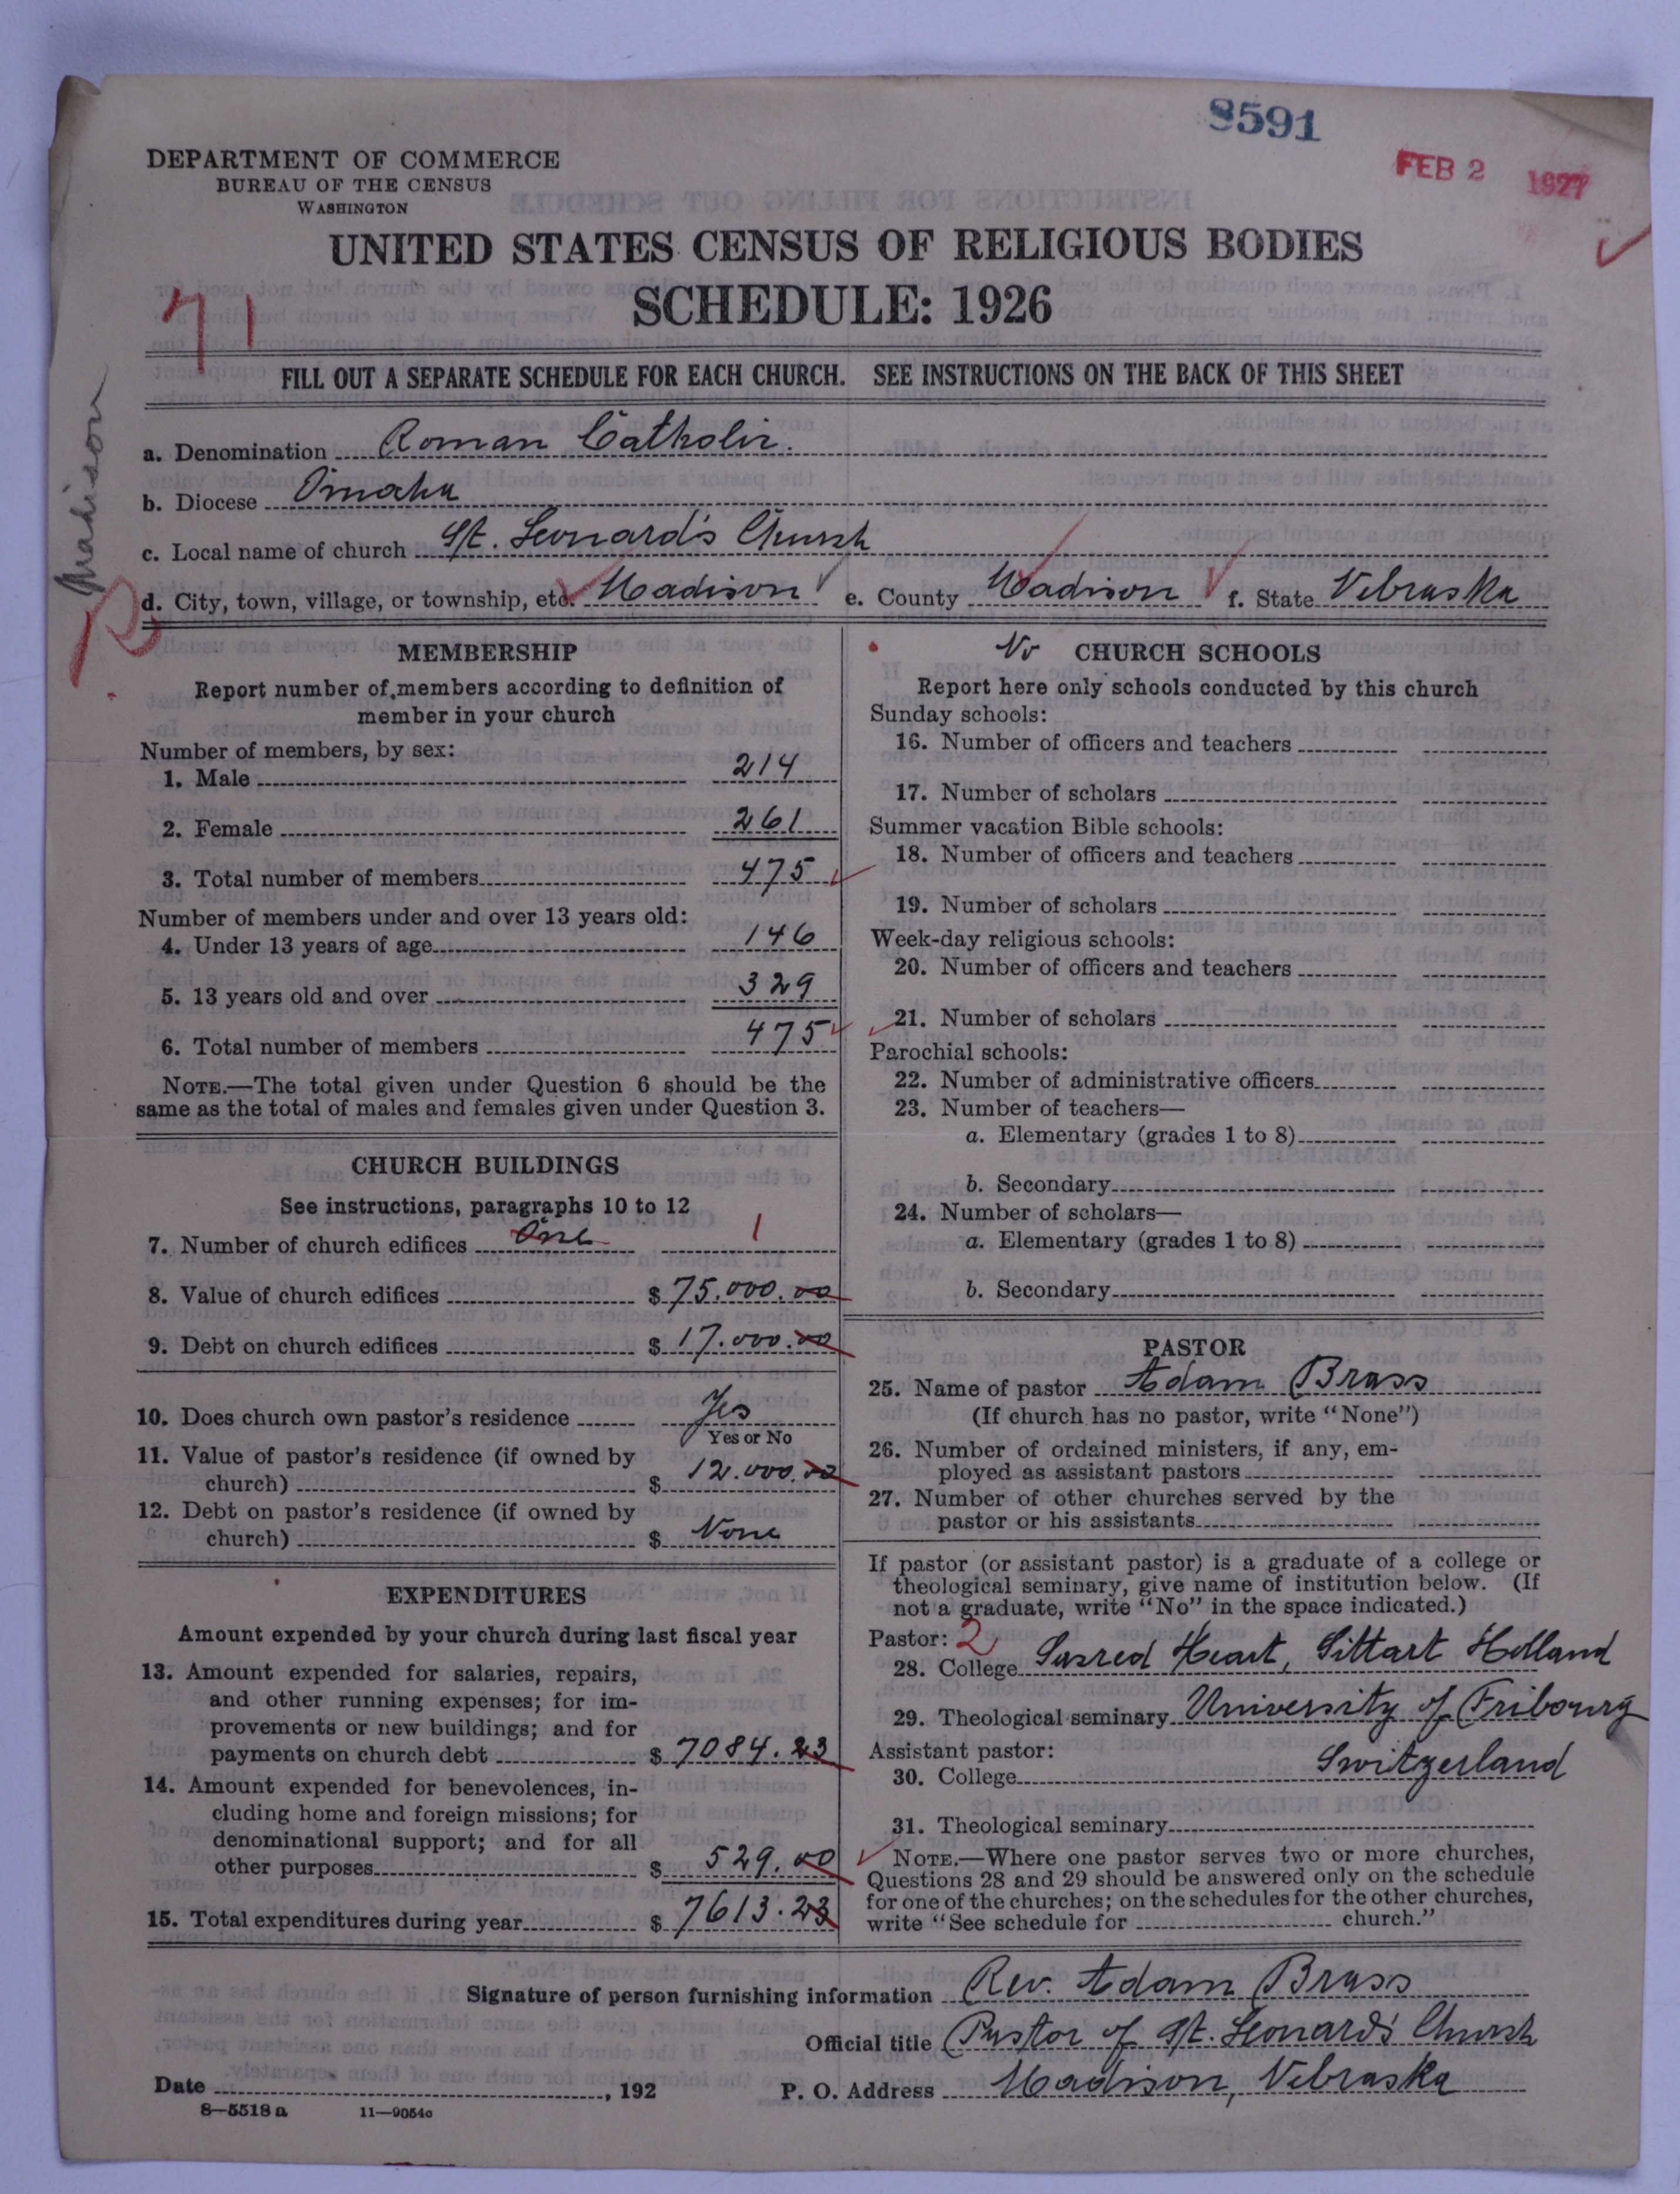 8591
FEB 2 1927
DEPARTMENT OF COMMERCE
BUREAU OF THE CENSUS
WASHINGTON
UNITED STATES CENSUS OF RELIGIOUS BODIES
SCHEDULE: 1926
71
Madison
FILL OUT A SEPARATE SCHEDULE FOR EACH CHURCH. SEE INSTRUCTIONS ON THE BACK OF THIS SHEET
a. Denomination Roman Catholic.
b. Diocese Omaha
c. Local name of church St. Leonard's Church
d. City, town, village, or township, etc. Madison e. County Madison f. State Nebraska
MEMBERSHIP
Report number of members according to definition of
member in your church
Number of members, by sex:
1. Male 214
2. Female 261
3. Total number of members 475
Number of members under and over 13 years old:
4. Under 13 years of age 146
5. 13 years old and over 329
6. Total number of members 475
NOTE.—The total given under Question 6 should be the
same as the total of males and females given under Question 3.
CHURCH BUILDINGS
See instructions, paragraphs 10 to 12
7. Number of church edifices One 1
8. Value of church edifices $ 75.000.00
9. Debt on church edifices $ 17.000.00
10. Does church own pastor's residence Yes
Yes or No
11. Value of pastor's residence (if owned by
church) $ 12.000.00
12. Debt on pastor's residence (if owned by
church) $ None
EXPENDITURES
Amount expended by your church during last fiscal year
13. Amount expended for salaries, repairs,
and other running expenses; for im-
provements or new buildings; and for
payments on church debt $ 7084.23
14. Amount expended for benevolences, in-
cluding home and foreign missions; for
denominational support; and for all
other purposes $ 529.00
15. Total expenditures during year $ 7613.23
No CHURCH SCHOOLS
Report here only schools conducted by this church
Sunday schools:
16. Number of officers and teachers
17. Number of scholars
Summer vacation Bible schools:
18. Number of officers and teachers
19. Number of scholars
Week-day religious schools:
20. Number of officers and teachers
21. Number of scholars
Parochial schools:
22. Number of administrative officers
23. Number of teachers—
a. Elementary (grades 1 to 8)
b. Secondary
24. Number of scholars—
a. Elementary (grades 1 to 8)
b. Secondary
PASTOR
25. Name of pastor Adam Brass
(If church has no pastor, write "None")
26. Number of ordained ministers, if any, em-
ployed as assistant pastors
27. Number of other churches served by the
pastor or his assistants
If pastor (or assistant pastor) is a graduate of a college or
theological seminary, give name of institution below. (If
not a graduate, write "No" in the space indicated.)
Pastor: 2
28. College Sacred Heart, Sittart Holland
29. Theological seminary University of Fribourg
Assistant pastor: Switzerland
30. College
31. Theological seminary
NOTE.—Where one pastor serves two or more churches,
Questions 28 and 29 should be answered only on the schedule
for one of the churches; on the schedules for the other churches,
write "See schedule for church."
Signature of person furnishing information Rev. Adam Brass
Official title Pastor of St. Leonard's Church
Date , 192 P. O. Address Madison, Nebraska
8—5518a 11—9054c